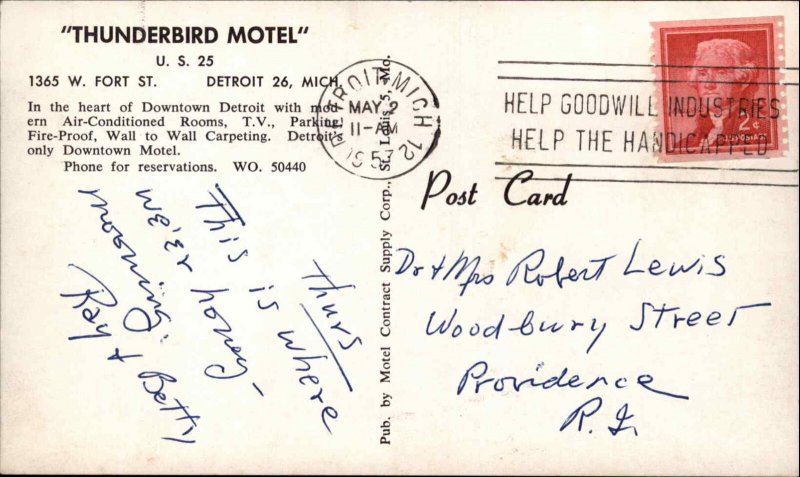 "THUNDERBIRD MOTEL"
U. S. 25
1365 W. FORT ST. DETROIT 26, MICH.
In the heart of Downtown Detroit with mod-
ern Air-Conditioned Rooms, T.V., Parking
Fire-Proof, Wall to Wall Carpeting. Detroit's
only Downtown Motel.
Phone for reservations. WO. 50440
Thurs
This is where
we'er honey-
mooning.
Ray & Betty
Pub. by Motel Contract Supply Corp., St. Louis, 5, Mo.
DETROIT, MICH. 12
MAY 2
11-AM
1957
HELP GOODWILL INDUSTRIES
HELP THE HANDICAPPED
2¢
Post Card
Dr & Mrs Robert Lewis
Woodbury Street
Providence
R.I.